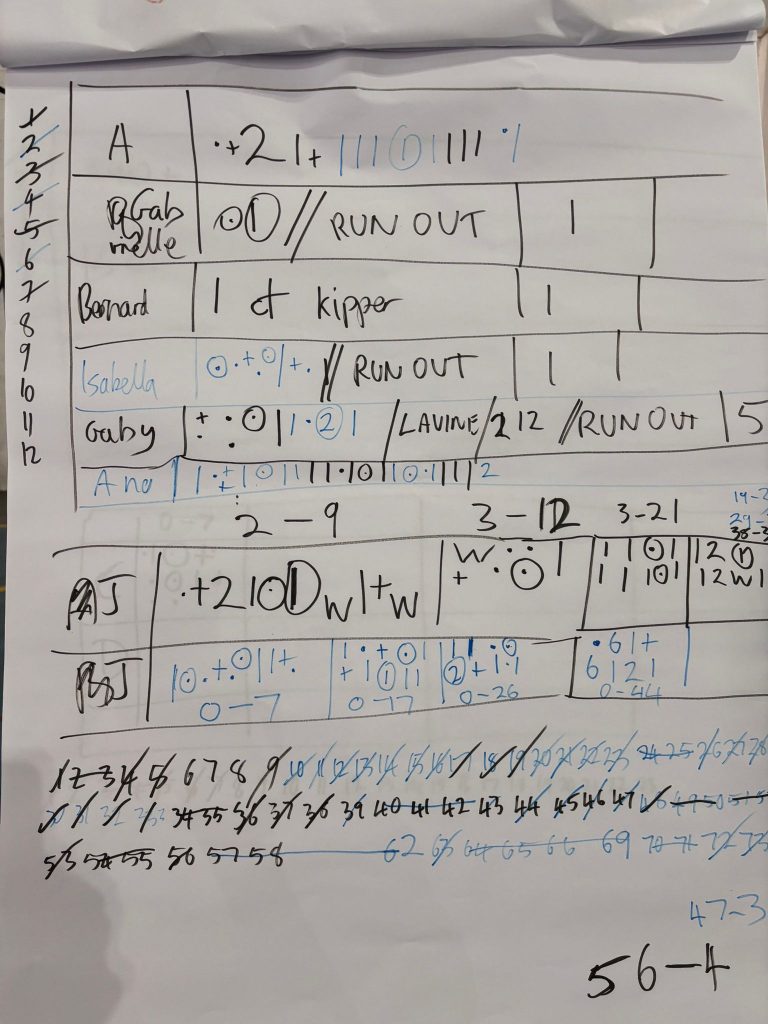 1
2
3
4
5
6
7
8
9
10
11
12
A · + 2 1 + 1 1 1 ① 1 1 1 1 · 1
Gab rielle ⊙ ① // RUN OUT 1
Bernard 1 ct kipper 1
Isabella ⊙ · + · ⊙ 1 + · // RUN OUT 1
Gaby + · · ⊙ 1 1 · ② 1 / LAVINE / 2 12 // RUN OUT 5
Ana
2 - 9 3 - 12 3 - 21
J · + 2 1 0 ① W 1 + W
W · · 1
+ · ⊙
1 1 ⊙ 1
1 1 1 0 1
1 2 ①
1 2 W 1
J 1 ⊙ · + · ⊙ 1 1 + ·
0 - 7
1 · + ⊙ 1
+ 1 ① 1 1
0 - 17
1 1 · ⊙
② + 1 · 1
0 - 26
· 6 1 +
6 1 2 1
0 - 44
1 2 3 4 5 6 7 8 9 10 11 12 13 14 15 16 17 18 19 20 21 22 23 24 25 26 27 28
30 31 32 33 34 35 36 37 38 39 40 41 42 43 44 45 46 47 48 49 50 51 52
53 54 55 56 57 58 62 63 64 65 66 69 70 71 72 73
47-3
56-4